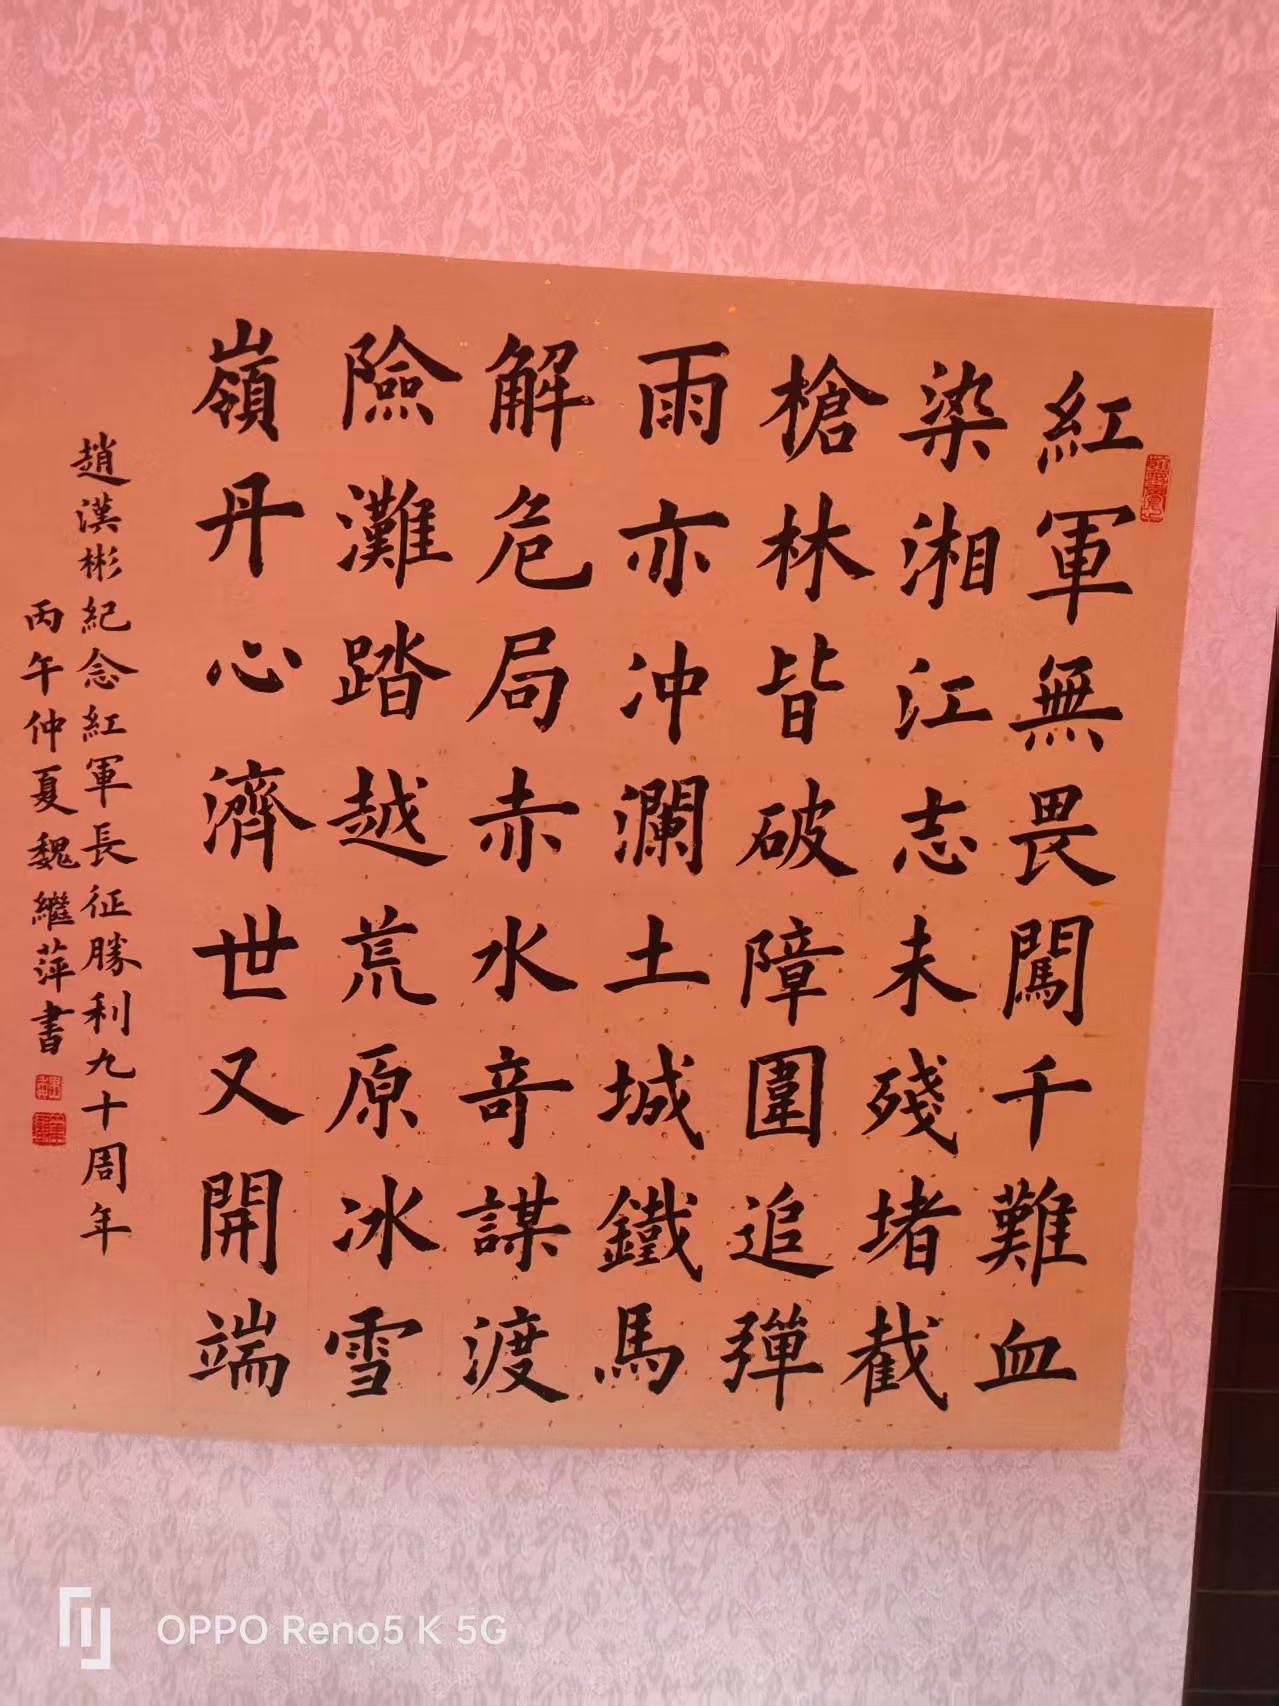 紅軍無畏闖千難血
染湘江志未殘堵截
槍林皆破障圍追彈
雨亦沖瀾土城鐵馬
解危局赤水奇謀渡
險灘踏越荒原冰雪
嶺丹心濟世又開端
趙漢彬紀念紅軍長征勝利九十周年
丙午仲夏魏繼萍書
OPPO Reno5 K 5G